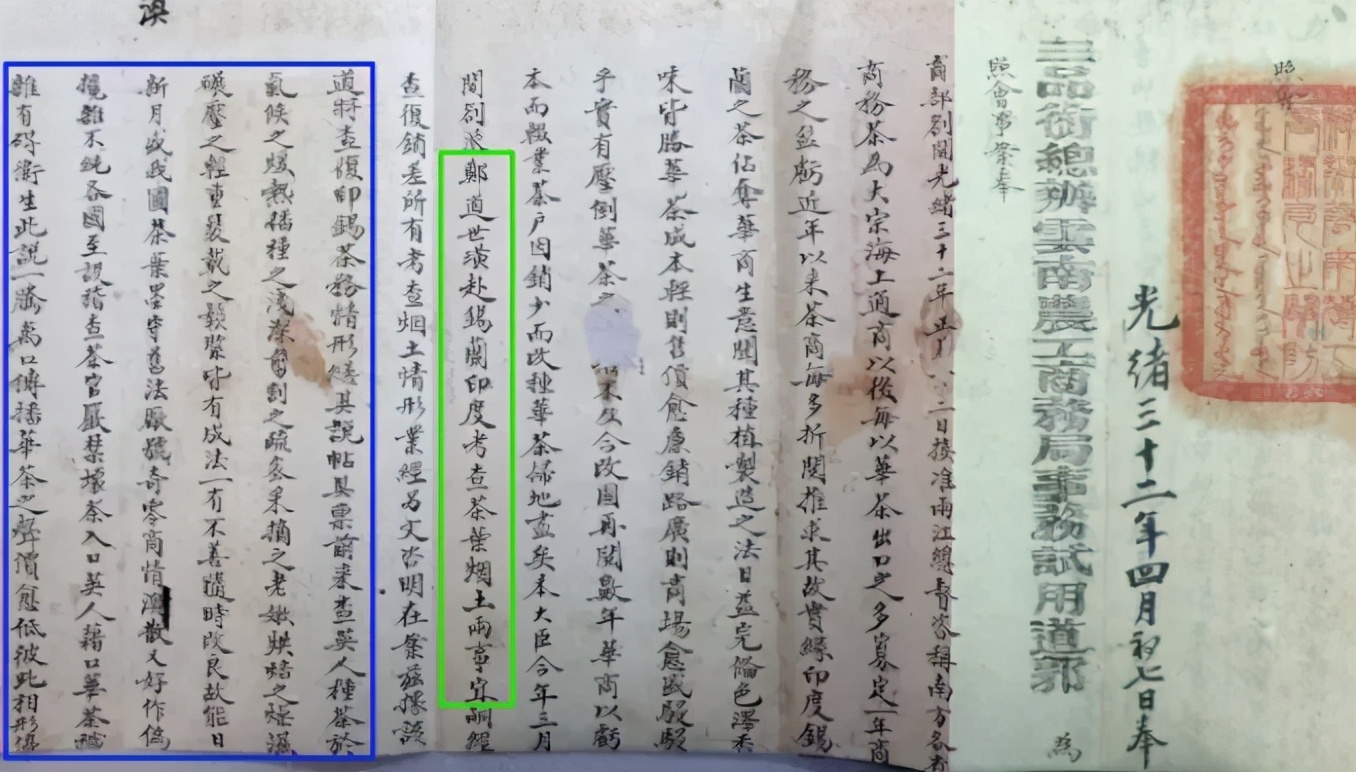 照會
光緒三十二年四月初七日奉
二品銜總辦雲南農工商務局事務試用道郭 為
照會事案奉
商部劄開光緒三十二年正月 二日接准兩江總督咨稱南方各省
商務茶為大宗海上通商以後每以華茶出口之多寡定一年商
務之盈虧近年以來茶商每多折閱推求其故實緣印度錫
蘭之茶佔奪華商生意聞其種植製造之法日益完備色澤香
味皆勝華茶成本輕則售價愈廉銷路廣則商場愈盛駸駸
乎實有壓倒華茶之 不及今改圖再閱數年華商以虧
本而輟業茶戶因銷少而改種華茶掃地盡矣本大臣今年三月
間劄派鄭道世璜赴錫蘭印度考查茶葉烟土兩事宜嗣經
查復銷差所有考查烟土情形業經另文咨明在案茲據該
道將查復印錫茶務情形繕具說帖具稟前來查英人種茶於
氣候之煖熱播種之淺深剪割之疏密采摘之老嫩烘焙之燥濕
碾壓之輕重裝裁之鬆緊皆有成法一有不善隨時改良故能日
新月盛我國茶葉墨守舊法厰號奇零商情渙散又好作偽
攙雜不純各國至設稽查茶官嚴禁壞茶入口英人藉口華茶穢
雜有碍衛生此說一騰萬口傳播華茶之聲價愈低彼此相形遂